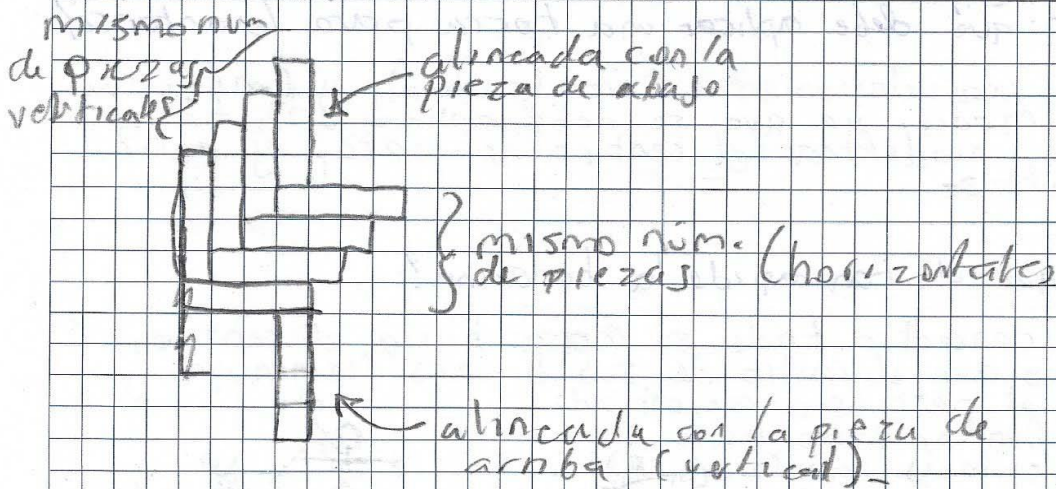 mismo núm
de piezas
verticales
alineada con la
pieza de abajo
mismo núm.
de piezas (horizontales
alineada con la pieza de
arriba (vertical).